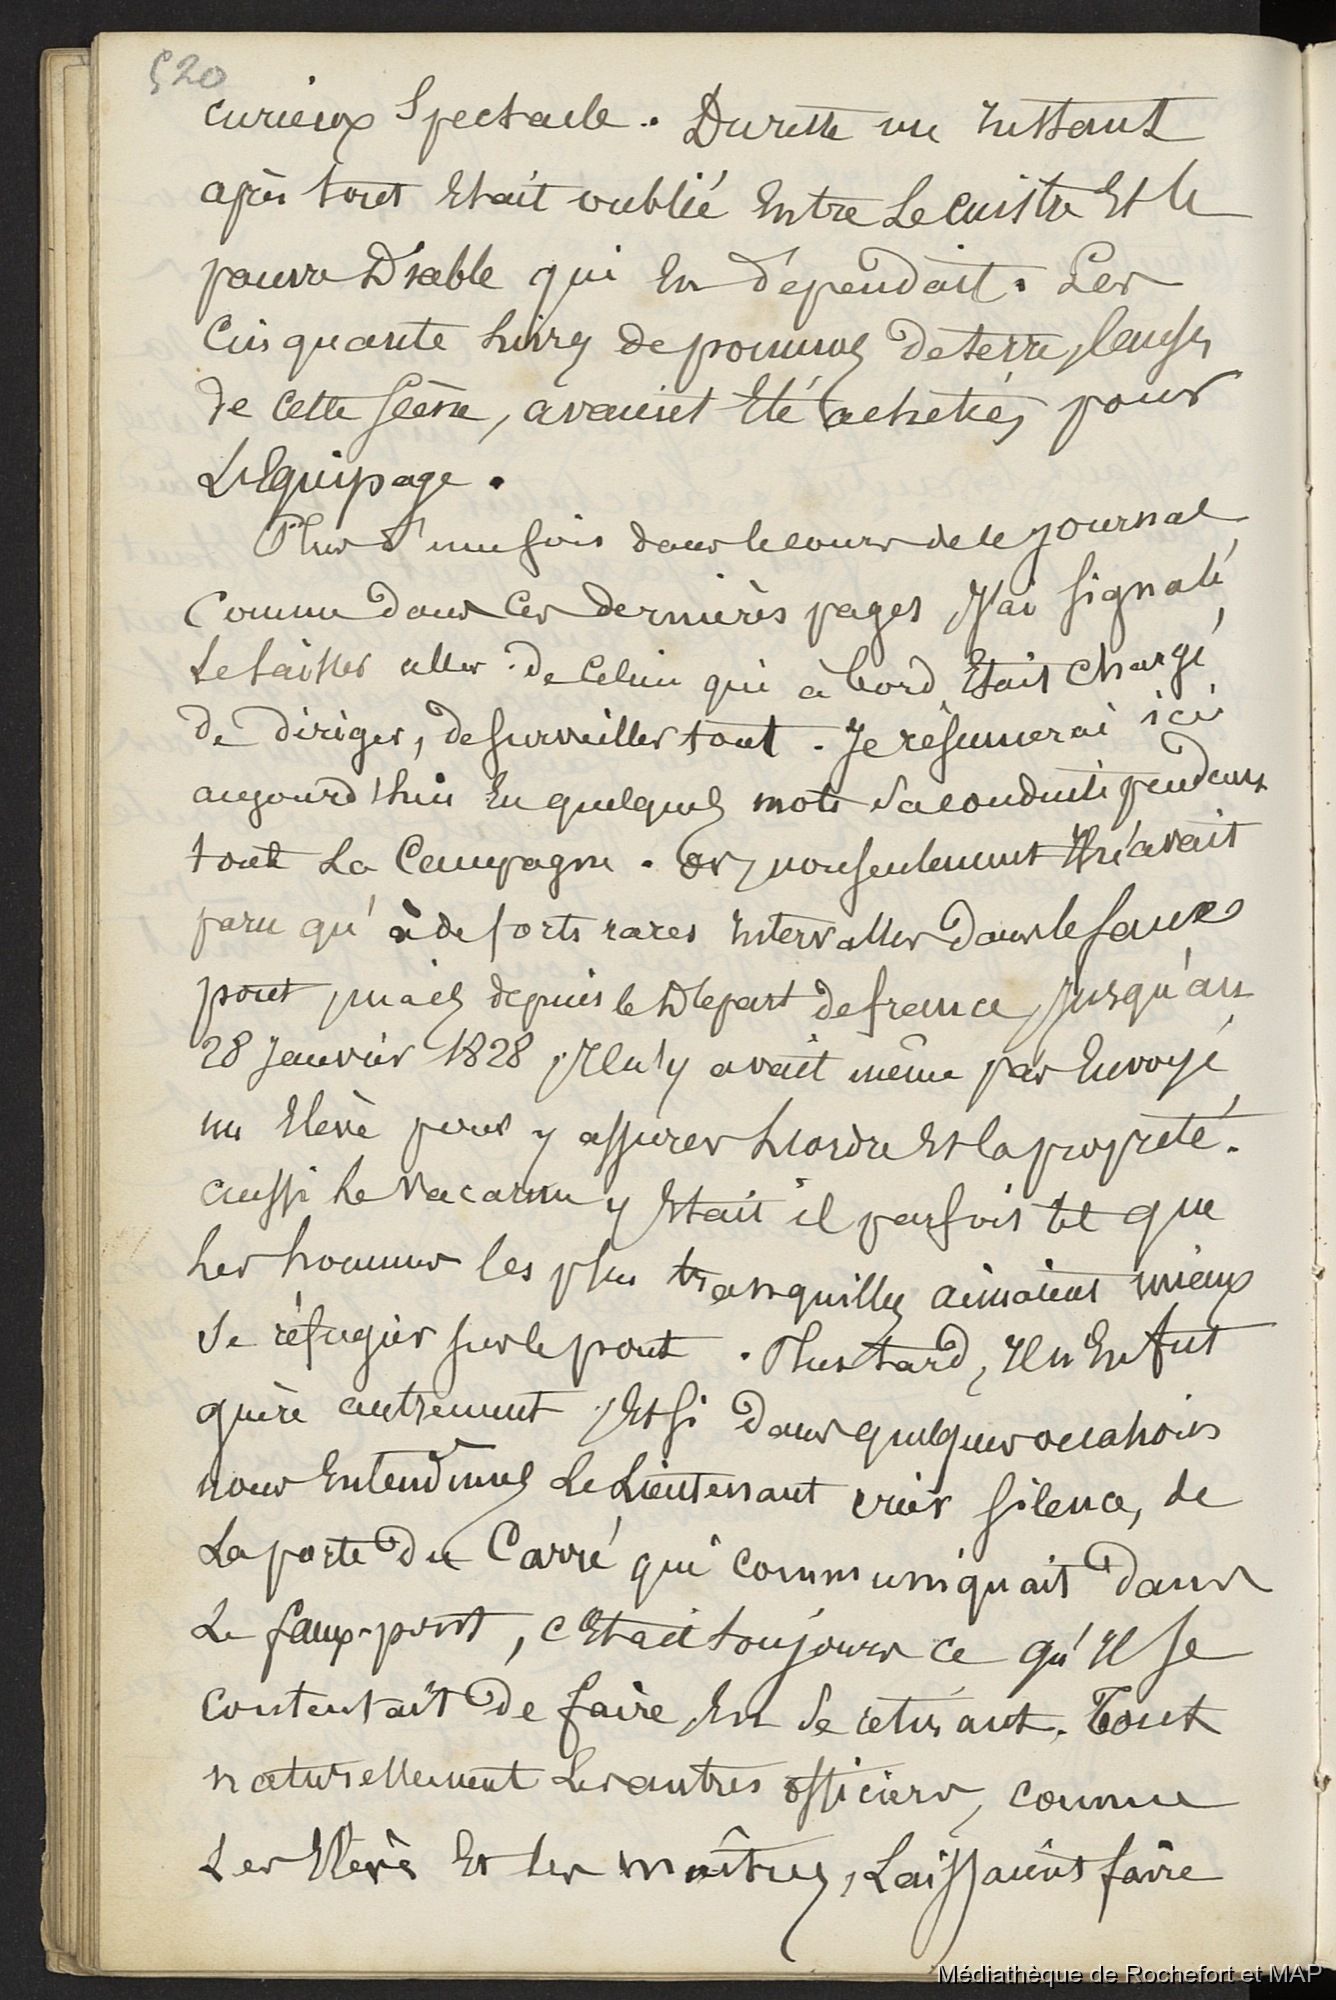 520
curieux Spectacle. Du reste un Instant
après tout Etait oublié Entre Le cuistre Et le
pauvre Diable qui En dépendait. Les
Cinquante livres de pommes de terre, causes
de cette Scène, avaient Eté achetées pour
L'Equipage.
Plus d'une fois dans le cours de ce journal,
Comme dans Ces dernières pages, J'ai signalé
Le laisser aller de Celui qui à bord Etait chargé
de diriger, de surveiller tout. Je résumerai ici
aujourd'hui En quelques mots Sa conduite pendant
toute La Campagne. or, non seulement Il n'avait
paru qu'à de forts rares Intervalles dans le faux
pont, mais depuis le Départ de france, Jusqu'au
28 Janvier 1828, Il n'y avait même pas Envoyé
un Elève pour y assurer L'ordre Et la propreté.
aussi Le vacarme y Etait il parfois tel que
Les hommes les plus tranquilles aimaient mieux
Se réfugier sur le pont. Plus tard, Il n'En fut
guère autrement, Et si dans quelques occasions
nous Entendimes Le Lieutenant crier silence, de
La porte du Carré qui communiquait dans
Le faux-pont, c'Etait toujours ce qu'Il se
contentait de faire, En Se retirant. Tout
naturellement Les autres officiers, comme
Les Elèves Et les maîtres, Laissaient faire
Médiathèque de Rochefort et MAP